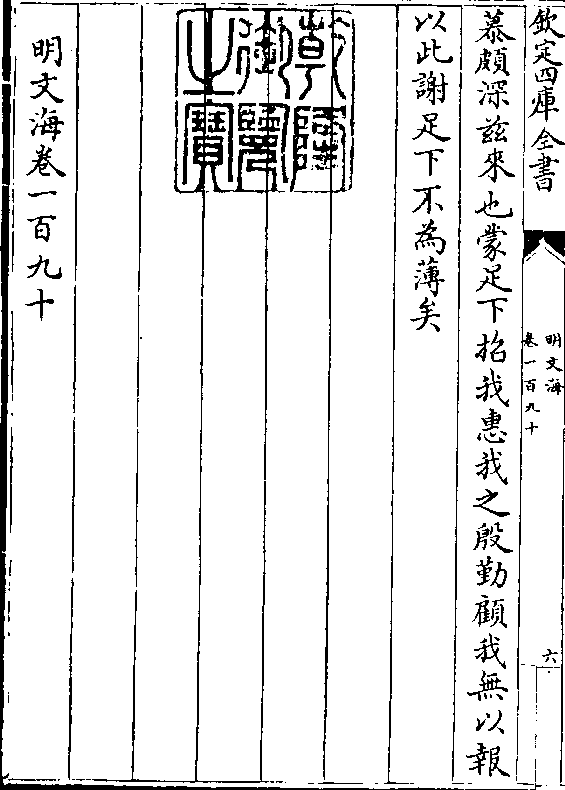 欽定四庫全書
明文海
卷一百九十
六
慕頗深茲來也蒙足下招我惠我之殷勤顧我無以報
以此謝足下不為薄矣
乾隆御覽之寶
明文海卷一百九十